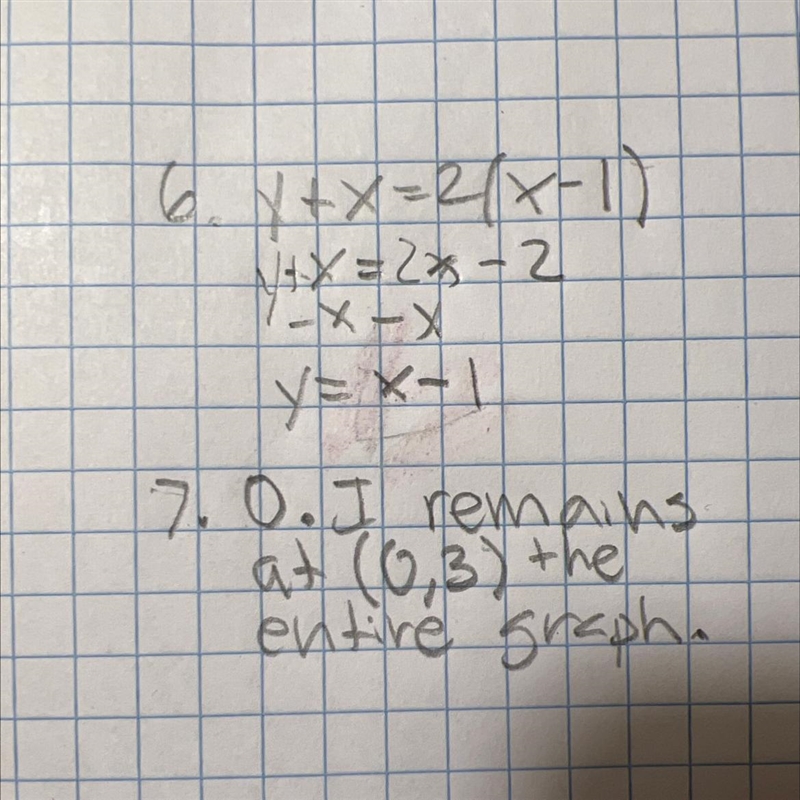 6. y+x=2(x-1)
y+x=2x-2
-x -x
y=x-1
7. 0. I remains
at (0,3) the
entire graph.